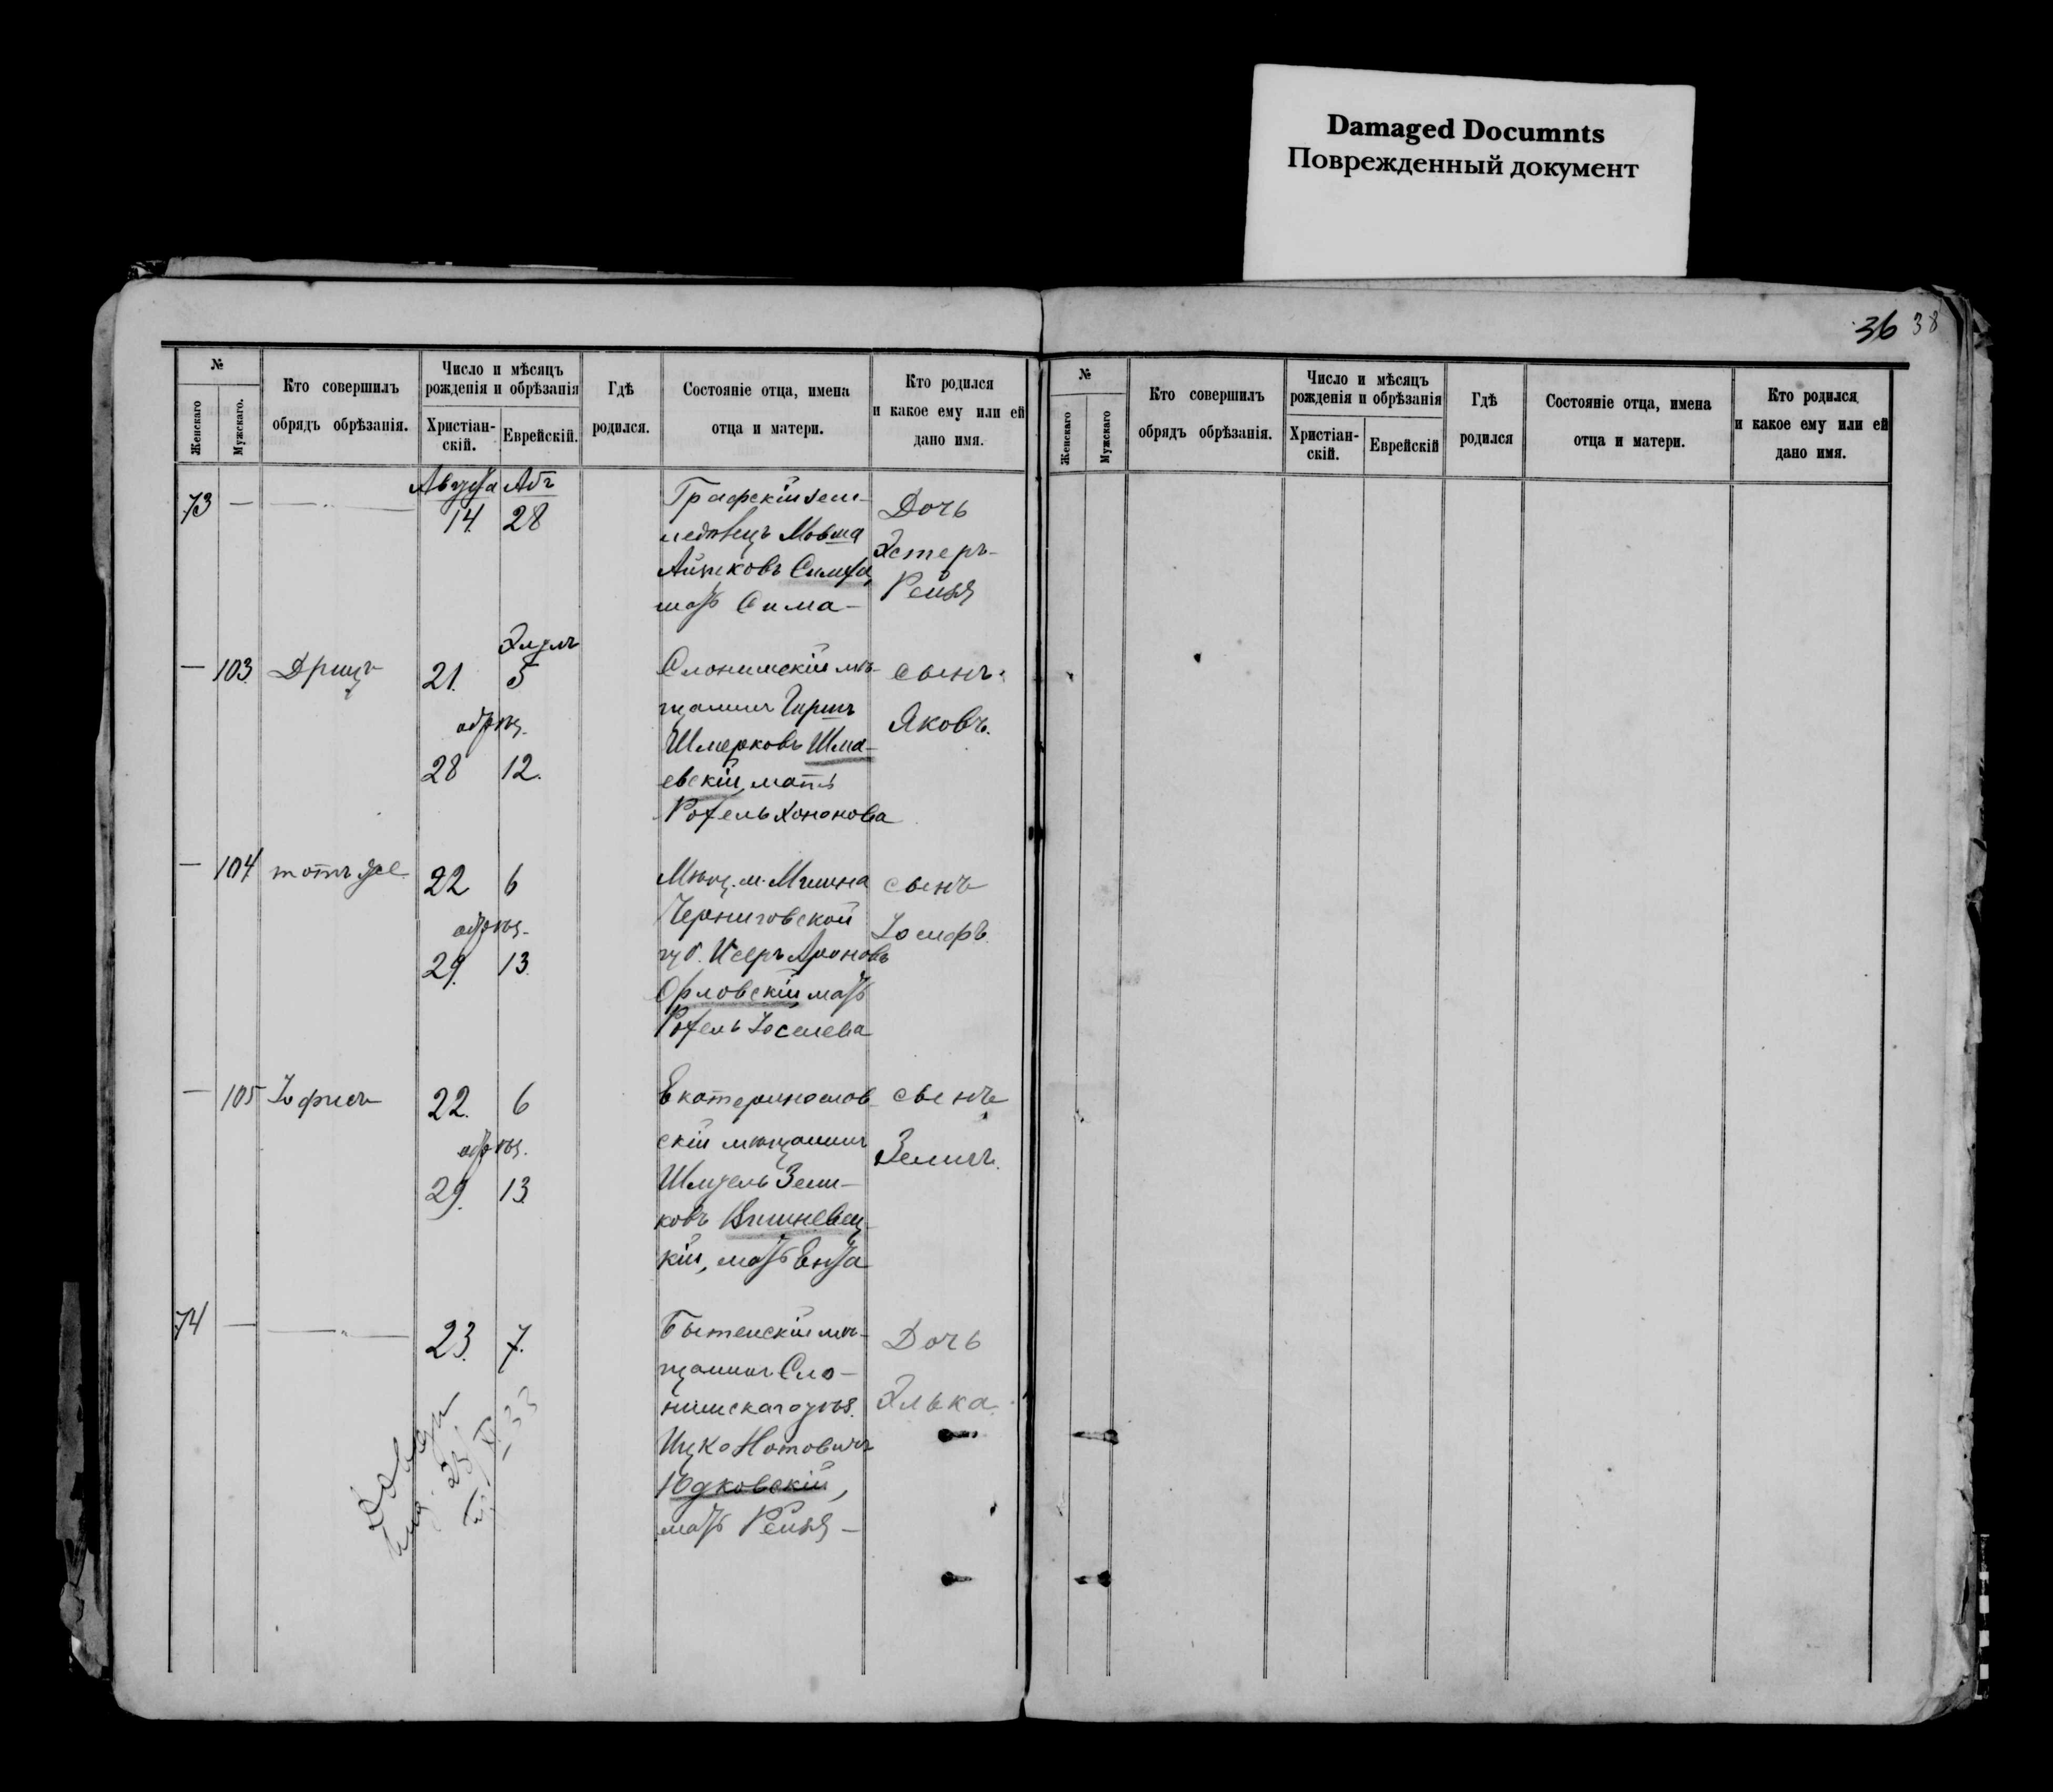 Damaged Documnts
Поврежденный документ
36 38
№
Женскаго
Мужскаго.
Кто совершилъ
обрядъ обрѣзанія.
Число и мѣсяцъ
рожденія и обрѣзанія
Христіан-
скій.
Еврейскій.
Гдѣ
родился.
Состояніе отца, имена
отца и матери.
Кто родился
и какое ему или ей
дано имя.
73 — —
Августа Абъ
14. 28
Графскій зем-
ледѣлецъ Мовша
мать Сима —
Дочь
Эстеръ-
Рейзя
— 103. Дрицъ
Элулъ
21. 5
обрѣз.
28 12.
Слонимскій мѣ-
щанинъ Гиршъ
Шмерковъ Шма-
евскій, мать
Рохель Хононова
сынъ.
Яковъ.
— 104 тотъ же
22 6
обрѣз.
29. 13.
Мѣщ. м. Мглина
Черниговской
губ. Исеръ Ароновъ
Орловскій мать
Рохель Іоселева
сынъ
Іосифъ.
— 105 Іофисъ
22. 6
обрѣз.
29. 13.
Екатеринослав-
скій мѣщанинъ
Шмуель Зели-
ковъ Вишневец-
кій, мать Ента
сынъ
Зеликъ.
74 — —
23. 7.
Бытенскій мѣ-
щанинъ Сло-
нимскаго уѣз.
Ицко Нотовичъ
Юдковскій,
мать Рейзя —
Дочь
Элька.
№
Женскаго
Мужскаго
Кто совершилъ
обрядъ обрѣзанія.
Число и мѣсяцъ
рожденія и обрѣзанія
Христіан-
скій.
Еврейскій
Гдѣ
родился
Состояніе отца, имена
отца и матери.
Кто родился
и какое ему или ей
дано имя.